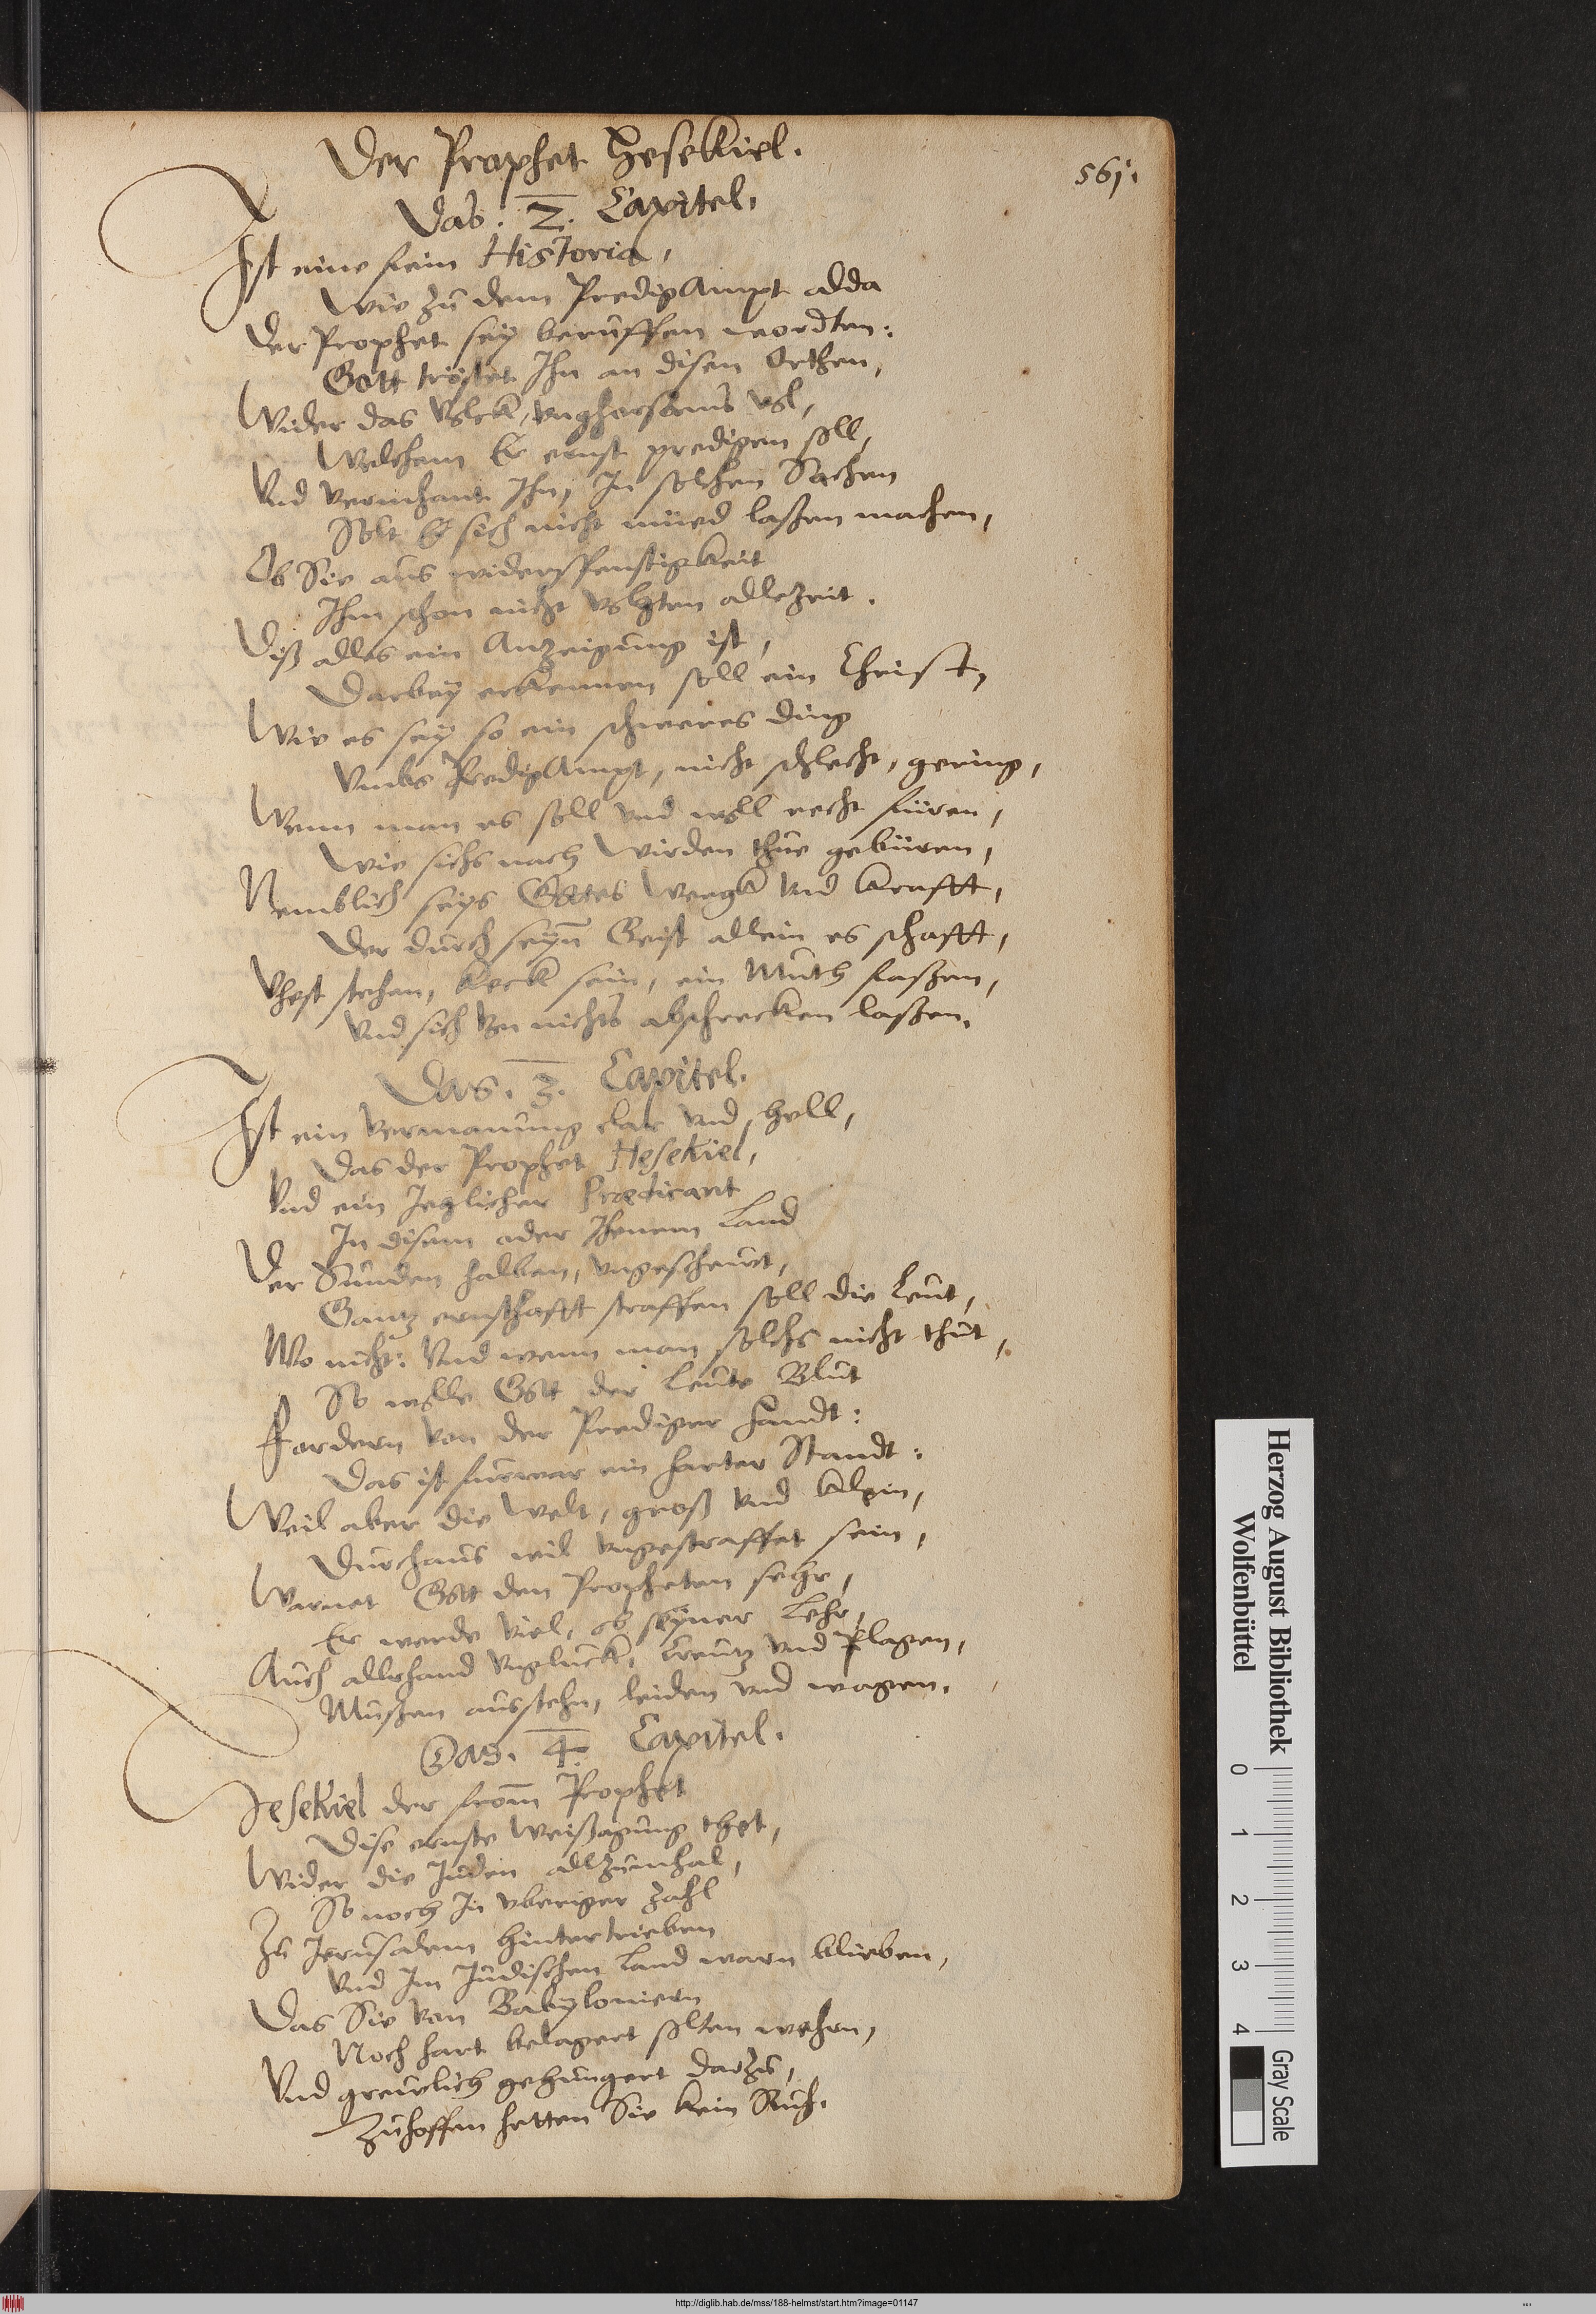 Der Prophet Hesekiel.
561.
Das. 2. Capitel.
Ist eine fein Historia,
Wie zu dem PredigAmpt allda
Der Prophet sey beruffen wordten:
Gott tröstet Ihn an disen Orthen,
Wider das Volck, vnghorsams vol,
Welchem Er ernst predigen soll,
Vnd vermhant Ihn, In solchen Sachen
Solt Er sich nicht müed laßen machen,
Ob Sie aus widerspenstigkeit
Ihm schon nicht volgten allezeit.
Diß alles ein Anzeigung ist,
Darbey erkennen soll ein Christ,
Wie es sey so ein schweres ding
Vmbs PredigAmpt, nicht schlecht, gering,
Wenn man es soll vnd woll recht füren,
Wie sichs nach Wirden thue gebüren,
Nemblich seys Gottes Werck vnd krafft,
Der durch seyn Geist allein es schafft,
Vhest stehen, keck sein, ein Muth faßen,
Vnd sich von nichts abschrecken laßen.
Das. 3. Capitel.
Ist ein vermanung clar vnd hell,
Das der Prophet Hesekiel,
Vnd ein Jeglicher Predicant
In disem oder Ihenem Land
Der Sunden halben, vngescheuet,
Gantz ernsthafft straffen soll die Leut,
Wo nicht: Vnd wenn man solchs nicht thut,
So wolle Gott der Leute Blut
Fordern von der Prediger Handt:
Das ist furwar ein harter Standt:
Weil aber die Welt, groß vnd klein,
Durchaus wil vngestraffet sein,
Warnet Gott den Propheten sehr,
Er werde viel, ob seyner Lehr,
Auch allerhand vngluck, Creutz vnd Plagen,
Mußen ausstehn, leiden vnd wagen.
Das. 4. Capitel.
Hesekiel der from Prophet
Dise ernste Weißagung thet,
Wider die Juden allzumhal,
So noch In vberiger Zahl
Zu Jerusalem hintertrieben
Vnd Im Jüdischen Land warn blieben,
Das Sie von Babyloniern
Noch hart belagert solten wehrn,
Vnd greulich gehungert darzu,
Zuhoffen hetten Sie kein Ruh.
Herzog August Bibliothek
Wolfenbüttel
0 1 2 3 4
Gray Scale
http://diglib.hab.de/mss/188-helmst/start.htm?image=01147